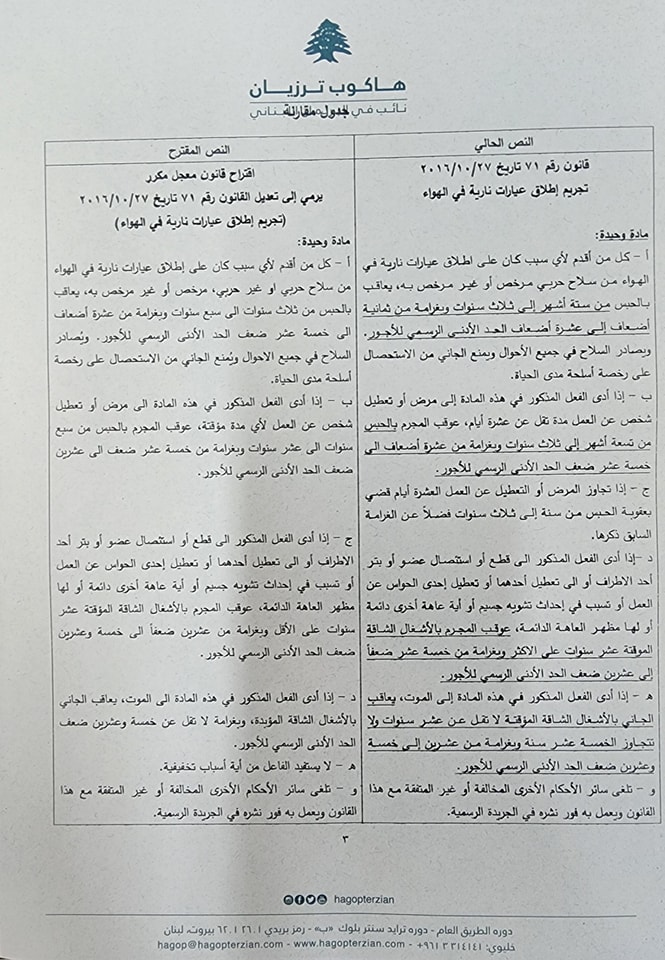 هاكوب ترزيان
نائب في البرلمان اللبناني
جدول مقارنة
النص الحالي
قانون رقم ٧١ تاريخ ٢٠١٦/١٠/٢٧
تجريم إطلاق عيارات نارية في الهواء
مادة وحيدة:
أ - كل من أقدم لأي سبب كان على اطلاق عيارات نارية في
الهواء من سلاح حربي مرخص أو غير مرخص به، يعاقب
بالحبس من ستة أشهر إلى ثلاث سنوات وبغرامة من ثمانية
أضعاف إلى عشرة أضعاف الحد الأدنى الرسمي للأجور.
ويصادر السلاح في جميع الأحوال ويمنع الجاني من الاستحصال
على رخصة أسلحة مدى الحياة.
ب - إذا أدى الفعل المذكور في هذه المادة إلى مرض أو تعطيل
شخص عن العمل مدة تقل عن عشرة أيام، عوقب المجرم بالحبس
من تسعة أشهر إلى ثلاث سنوات وبغرامة من عشرة أضعاف الى
خمسة عشر ضعف الحد الأدنى الرسمي للأجور.
ج - إذا تجاوز المرض أو التعطيل عن العمل العشرة أيام قضي
بعقوبة الحبس من سنة إلى ثلاث سنوات فضلاً عن الغرامة
السابق ذكرها.
د - إذا أدى الفعل المذكور الى قطع أو استئصال عضو أو بتر
أحد الأطراف أو الى تعطيل أحدهما أو تعطيل إحدى الحواس عن
العمل أو تسبب في إحداث تشويه جسيم أو أية عاهة أخرى دائمة
أو لها مظهر العاهة الدائمة، عوقب المجرم بالأشغال الشاقة
الموقتة عشر سنوات على الاكثر وبغرامة من خمسة عشر ضعفاً
إلى عشرين ضعف الحد الأدنى الرسمي للأجور.
ه - إذا أدى الفعل المذكور في هذه المادة إلى الموت، يعاقب
الجاني بالأشغال الشاقة المؤقتة لا تقل عن عشر سنوات ولا
تتجاوز الخمسة عشر سنة وبغرامة من عشرين إلى خمسة
وعشرين ضعف الحد الأدنى الرسمي للأجور.
و - تلغى سائر الأحكام الأخرى المخالفة أو غير المتفقة مع هذا
القانون ويعمل به فور نشره في الجريدة الرسمية.
النص المقترح
اقتراح قانون معجل مكرر
يرمي إلى تعديل القانون رقم ٧١ تاريخ ٢٠١٦/١٠/٢٧
(تجريم إطلاق عيارات نارية في الهواء)
مادة وحيدة:
أ - كل من أقدم لأي سبب كان على إطلاق عيارات نارية في الهواء
من سلاح حربي او غير حربي، مرخص أو غير مرخص به، يعاقب
بالحبس من ثلاث سنوات الى سبع سنوات وبغرامة من عشرة أضعاف
الى خمسة عشر ضعف الحد الأدنى الرسمي للأجور. ويُصادر
السلاح في جميع الاحوال ويُمنع الجاني من الاستحصال على رخصة
أسلحة مدى الحياة.
ب - إذا أدى الفعل المذكور في هذه المادة الى مرض أو تعطيل
شخص عن العمل لأي مدة مؤقتة، عوقب المجرم بالحبس من سبع
سنوات الى عشر سنوات وبغرامة من خمسة عشر ضعف الى عشرين
ضعف الحد الأدنى الرسمي للأجور.
ج - إذا أدى الفعل المذكور الى قطع أو استئصال عضو أو بتر أحد
الاطراف أو الى تعطيل أحدهما أو تعطيل إحدى الحواس عن العمل
أو تسبب في إحداث تشويه جسيم أو أية عاهة أخرى دائمة أو لها
مظهر العاهة الدائمة، عوقب المجرم بالأشغال الشاقة المؤقتة عشر
سنوات على الأقل وبغرامة من عشرين ضعفاً الى خمسة وعشرين
ضعف الحد الأدنى الرسمي للأجور.
د - إذا أدى الفعل المذكور في هذه المادة الى الموت، يعاقب الجاني
بالأشغال الشاقة المؤبدة، وبغرامة لا تقل عن خمسة وعشرين ضعف
الحد الأدنى الرسمي للأجور.
ه - لا يستفيد الفاعل من أية أسباب تخفيفية.
و - تلغى سائر الأحكام الأخرى المخالفة أو غير المتفقة مع هذا
القانون ويعمل به فور نشره في الجريدة الرسمية.
٣
hagopterzian
دوره الطريق العام - دوره ترايد سنتر بلوك «ب» - رمز بريدي ٢٦٠١ ٦٢٠١ بيروت، لبنان
خليوي: ٣١٤١٤١ ٣ ٩٦١+ hagop@hagopterzian.com - www.hagopterzian.com